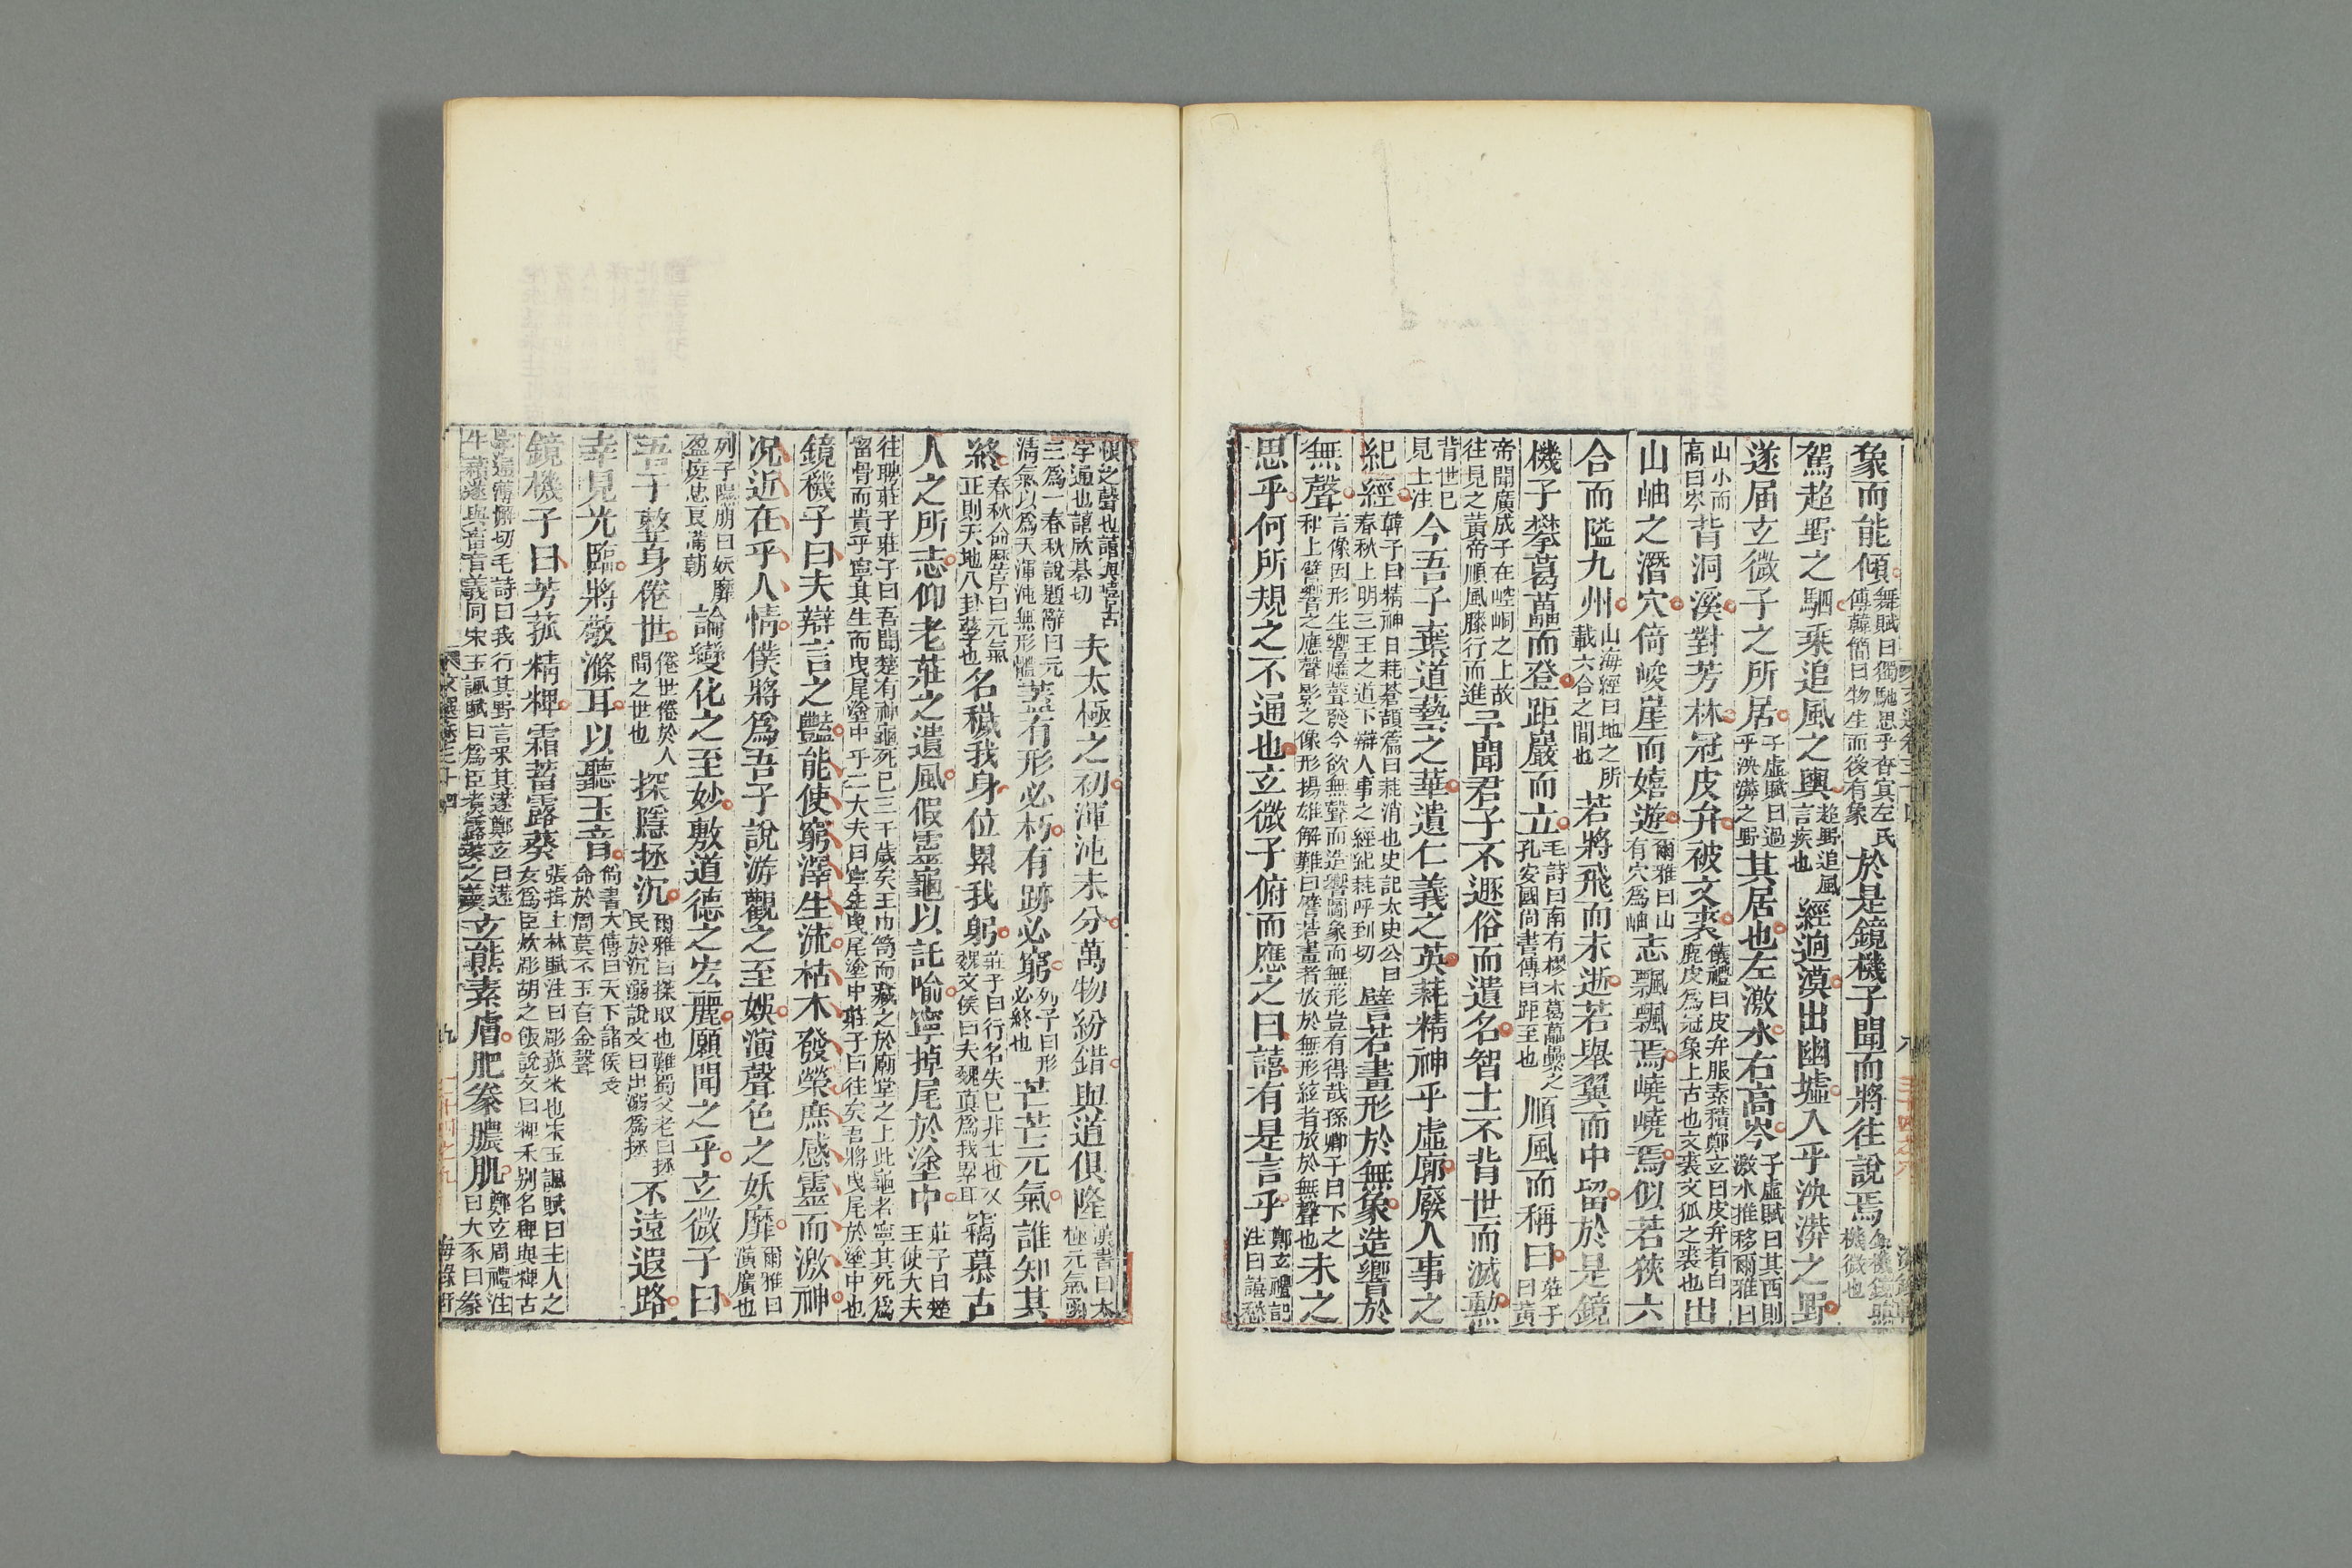 象而能傾舞賦曰獨馳思乎杳冥左氏傳韓簡曰物生而後有象於是鏡機子聞而將往說焉
駕超野之駟乘追風之輿超野追風言疾也經迥漠出幽墟入乎泱漭之野
遂届玄微子之所居子虛賦曰過乎泱漭之野其居也左激水右高岑子虛賦曰其西則激水推移爾雅曰
山小而高曰岑背洞溪對芳林冠皮弁被文裘儀禮曰皮弁服素積鄭玄曰皮弁者白鹿皮爲冠象上古也文裘文狐之裘也出
山岫之潛穴倚峻崖而嬉遊爾雅曰山有穴爲岫志飄飄焉嶢嶢焉似若狹六
合而隘九州山海經曰地之所載六合之間也若將飛而未逝若舉翼而中留於是鏡
機子攀葛藟而登距巖而立毛詩曰南有樛木葛藟纍之孔安國尚書傳曰距至也順風而稱曰莊子曰黃
帝聞廣成子在崆峒之上故往見之黃帝順風膝行而進予聞君子不遯俗而遺名智士不背世而滅勳
背世已見上注今吾子棄道藝之華遺仁義之英耗精神乎虛廓廢人事之
紀經韓子曰精神日耗蒼頡篇曰耗消也史記太史公曰春秋上明三王之道下辯人事之經紀耗呼到切譬若畫形於無象造響於
無聲言像因形生響隨聲發今欲無聲而造響圖象而無形豈有得哉孫卿子曰下之和上譬響之應聲影之像形揚雄解難曰譬若畫者放於無形絃者放於無聲也未之
思乎何所規之不通也玄微子俯而應之曰譆有是言乎鄭玄禮記注曰譆
恨之聲也譆與嘻古字通也譆欣基切夫太極之初渾沌未分萬物紛錯與道俱隆漢書曰太極元氣函
三爲一春秋說題辭曰元清氣以爲天渾沌無形體蓋有形必朽有跡必窮列子曰形必終也芒芒元氣誰知其
終春秋命歷序曰元氣正則天地八卦孳也名穢我身位累我躬莊子曰行名失己非士也又魏文侯曰夫魏真爲我累耳竊慕古
人之所志仰老莊之遺風假靈龜以託喻寧掉尾於塗中莊子曰楚王使大夫
往聘莊子莊子曰吾聞楚有神龜死已三千歲矣王巾笥而藏之於廟堂之上此龜者寧其死爲留骨而貴乎寧其生而曳尾塗中乎二大夫曰寧生曳尾塗中莊子曰往矣吾將曳尾於塗中也
鏡機子曰夫辯言之豔能使窮澤生流枯木發榮庶感靈而激神
况近在乎人情僕將爲吾子說游觀之至娛演聲色之妖靡爾雅曰演廣也
列子隰朋曰妖靡盈庭忠良滿朝論變化之至妙敷道德之宏麗願聞之乎玄微子曰
吾子整身倦世倦世倦於人間之世也探隱拯沉爾雅曰探取也難蜀父老曰拯民於沉溺說文曰出溺爲拯不遠遐路
幸見光臨將敬滌耳以聽玉音尚書大傳曰天下諸侯受命於周莫不玉音金聲
鏡機子曰芳菰精粺霜蓄露葵張揖上林賦注曰彫菰米也宋玉諷賦曰主人之女爲臣炊彫胡之飯說文曰粺禾別名稗與粺古
字通薄懈切毛詩曰我行其野言采其蓫鄭玄曰蓫牛蘈蓫與蓄音義同宋玉諷賦曰爲臣煮露葵之羹玄熊素膚肥豢膿肌鄭玄周禮注曰犬豕曰豢